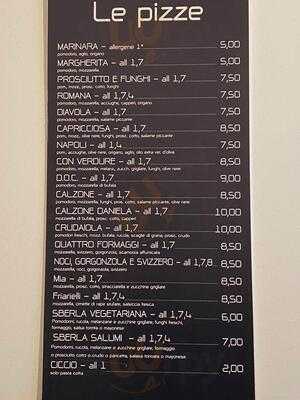 Le pizze
MARINARA - allergene 1* 5,00
pomodoro, aglio, origano
MARGHERITA - all 1,7 5,00
pomodoro, mozzarella
PROSCIUTTO E FUNGHI - all 1,7 7,50
pom., mozz., prosc. cotto, funghi
ROMANA - all 1,7,4 7,50
pomodoro, mozzarella, acciughe, capperi, origano
DIAVOLA - all 1,7 7,50
pomodoro, mozzarella, salame piccante
CAPRICCIOSA - all 1,7 8,50
pom, mozz, olive nere, funghi, prosc. cotto, salame piccante
NAPOLI - all 1,4 7,50
pom., acciughe, olive nere, origano, aglio, olio extra ver. d'oliva
CON VERDURE - all 1,7 8,50
pomodoro, mozzarella, melanz., zucch. grigliate, funghi, olive nere
D.O.C. - all 1,7 9,00
pomodoro, mozzarella di bufala
CALZONE - all 1,7 8,50
pomodoro, mozzarella, funghi, pros. cotto, salame piccante, olive nere
CALZONE DANIELA - all 1,7 10,00
pomodoro, mozzarella di bufala, prosc. cotto, capperi
CRUDAIOLA - all 1,7 10,00
pomodori freschi, mozz. bufala, rucola, scaglie di grana, prosc. crudo
QUATTRO FORMAGGI - all 1,7 8,50
mozzarella, svizzero, gorgonzola, scamorza affumicata
NOCI, GORGONZOLA E SVIZZERO - all 1,7,8 8,50
mozzarella, noci, gorgonzola, svizzero
Mia - all 1,7 8,50
mozzarella, prosc. cotto, stracciatella e zucchine grigliate
Friarielli - all 1,7,4 8,50
mozzarella, cimette di rape stufate, salsiccia fresca
SBERLA VEGETARIANA - all 1,7,4 6,00
Pomodoro, rucola, melanzane e zucchine grigliate, funghi freschi,
formaggio, salsa tonnata o maionese
SBERLA SALUMI - all 1,7,4 7,00
Pomodoro, rucola, melanzane e zucchine grigliate, formaggio
o prosciutto cotto o crudo o pancetta, salsa tonnata o maionese
CICCIO - all 1 2,00
solo pasta cotta